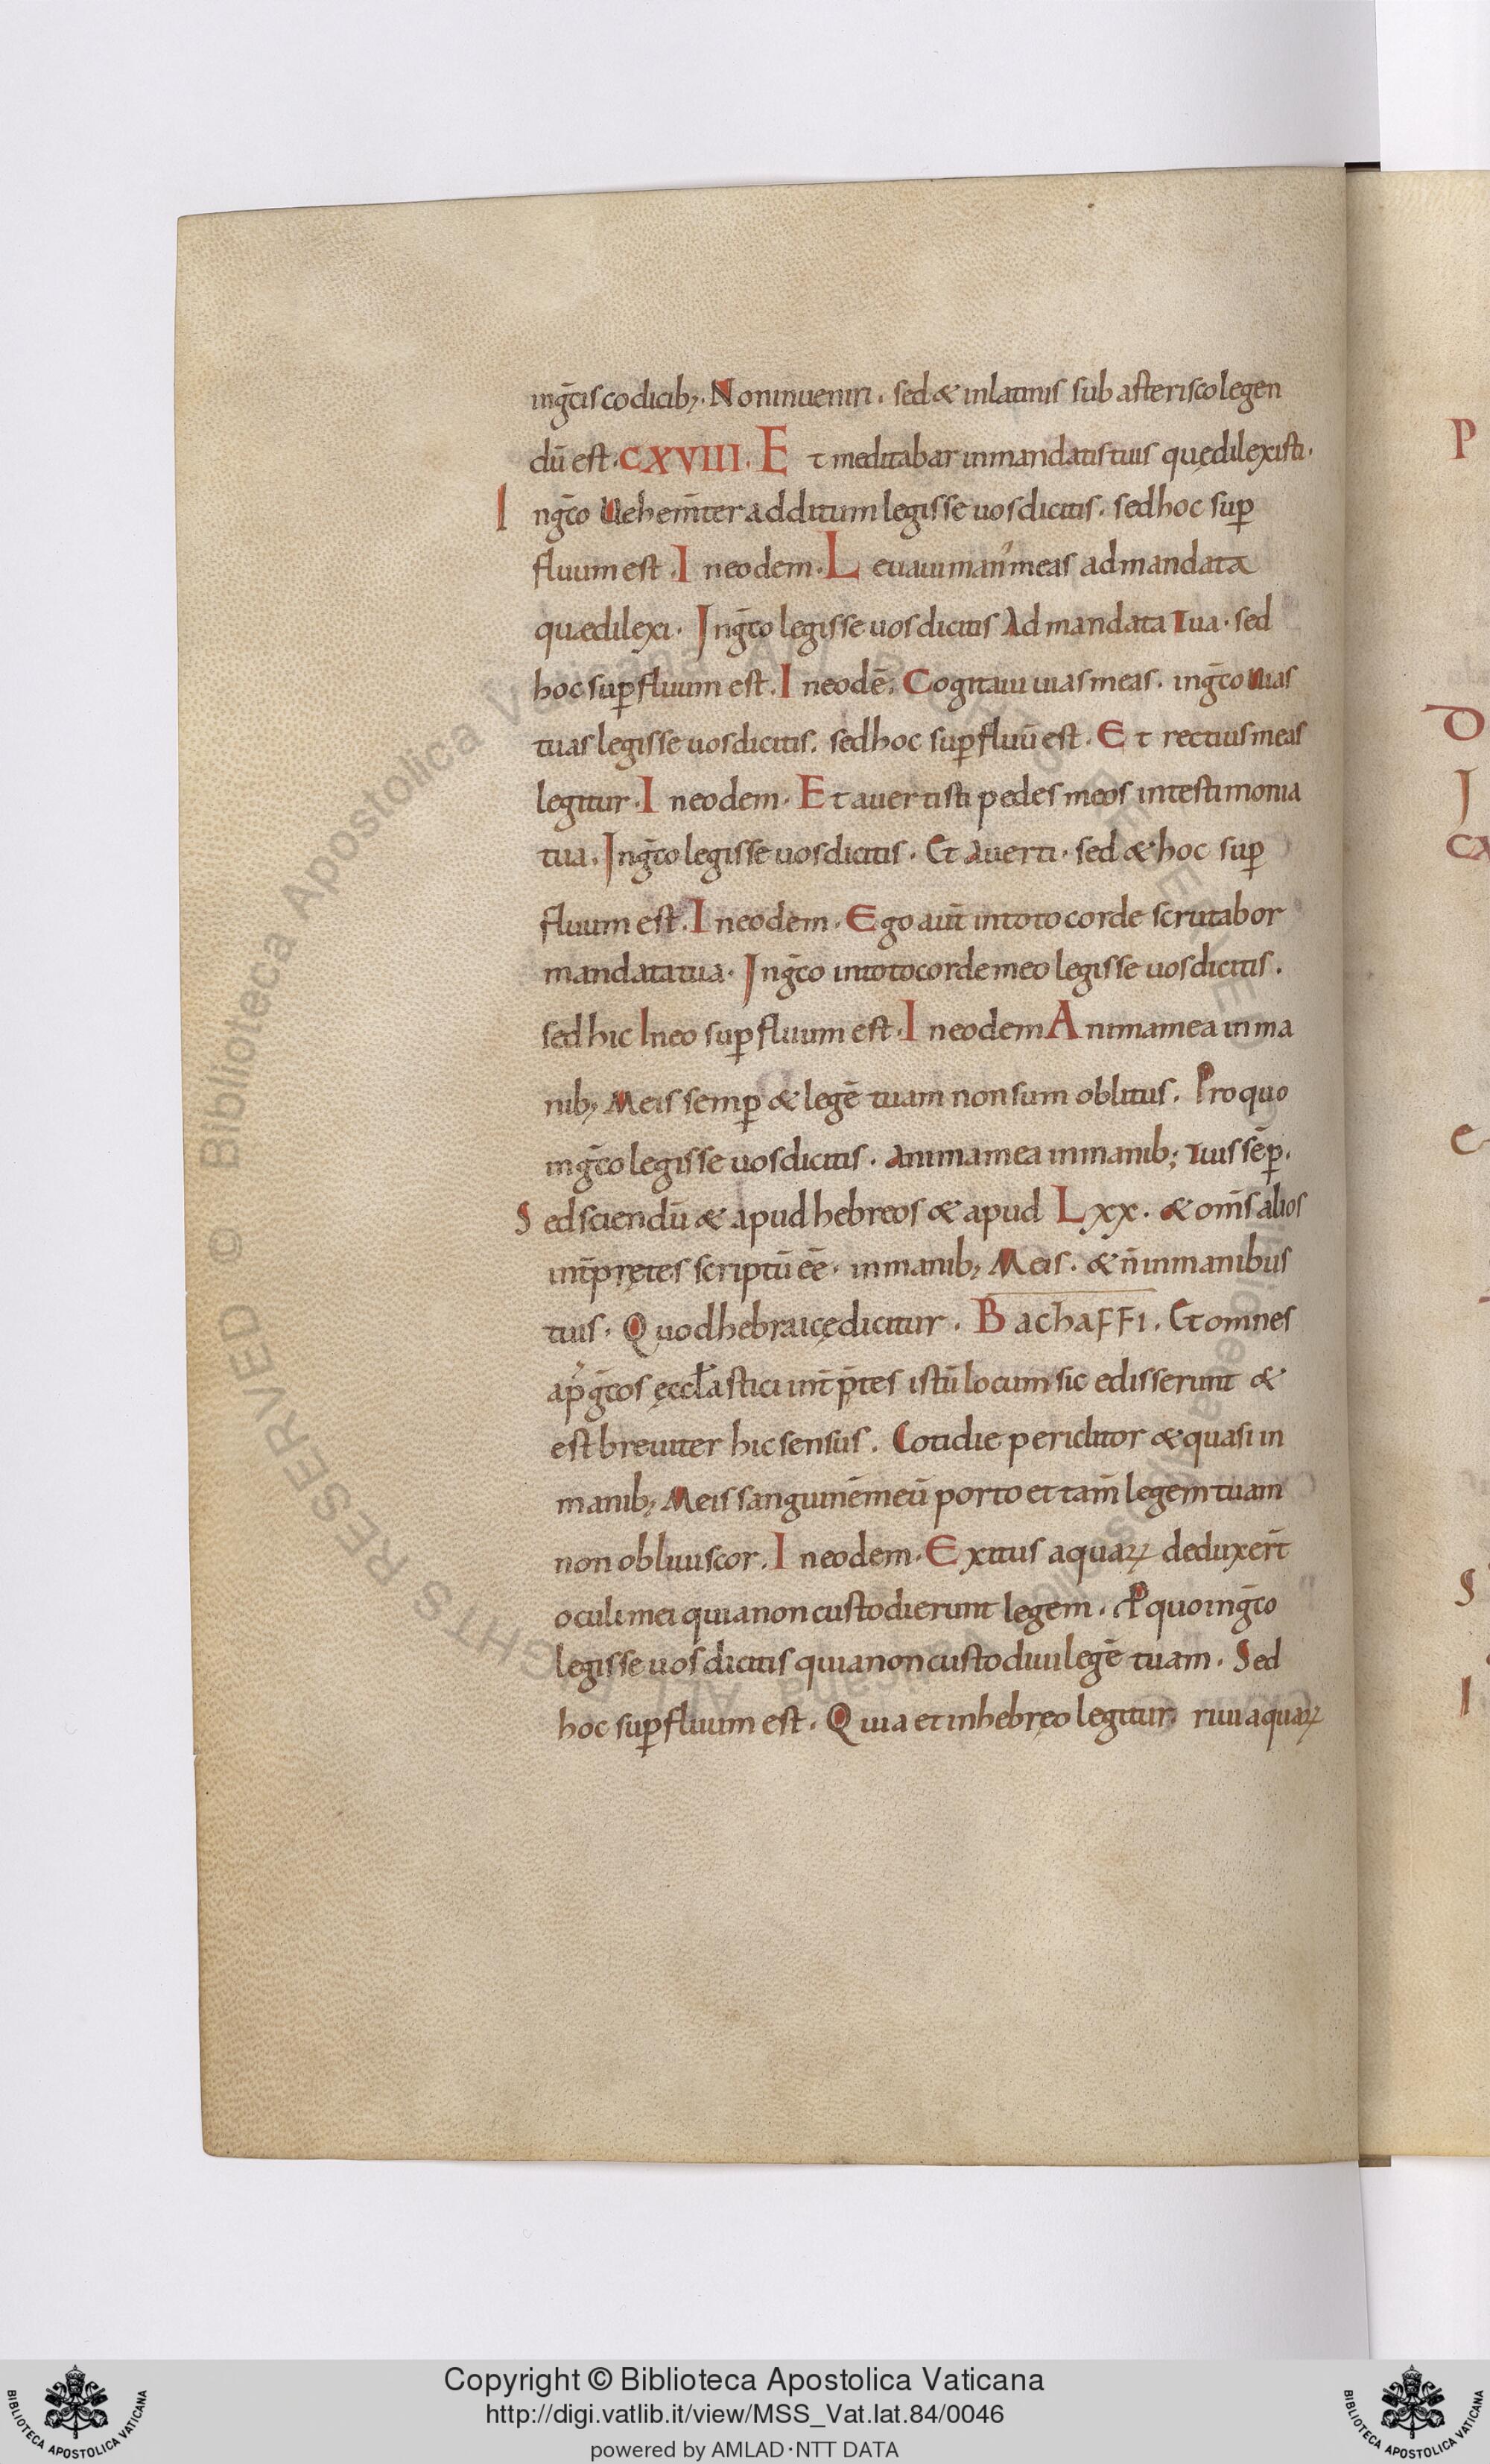 ing̅cis codicib; · Non inueniri . sed & in latinis sub asterisco legen
dū est · CXVIII . Et meditabar in mandatis tuis quę dilexisti ·
Ing̅co Uehem̅ter additum legisse uos dicitis . sed hoc suꝑ
fluum est . In eodem . Leuaui man᾽ meas ad mandata
quæ dilexi . Ing̅co legisse uos dicitis Ad mandata tua . sed
hoc suꝑfluum est . In eodē . Cogitaui uias meas . ing̅co uias
tuas legisse uos dicitis . sed hoc suꝑfluū est . Et rectius meas
legitur . In eodem . Et auertisti pedes meos in testimonia
tua . Ing̅co legisse uos dicitis . Et auerti . sed & hoc suꝑ
fluum est . In eodem . Ego aut̅ in toto corde scrutabor
mandata tua . Ing̅co in toto corde meo legisse uos dicitis .
sed hic Ineo suꝑfluum est . In eodem Anima mea in ma
nib; Meis semꝑ & legē tuam non sum oblitus . Pro quo
ing̅co legisse uos dicitis . anima mea in manib; tuis sēꝑ .
Sed sciendū & apud hebreos & apud Lxx . & om̅s alios
int̅p̅rętes scriptū eē . in manib; Meis . & n̅ in manibus
tuis . Quod hebraicę dicitur . Bachaffi . Et omnes
ap᾽ g̅cos ęccłastici int̅p̅tes istū locum sic edisserunt &
est breuiter hic sensus . Cotidie periclitor & quasi in
manib; Meis sanguinē meū porto et tam̅ legem tuam
non obliuiscor . In eodem . Exitus aquaꝝ deduxer̅t
oculi mei quia non custodierunt legem . P quo ing̅co
legisse uos dicitis quia non custodiui legē tuam . Sed
hoc suꝑfluum est . Quia et in hebręo legitur riui aquaꝝ
Copyright © Biblioteca Apostolica Vaticana
http://digi.vatlib.it/view/MSS_Vat.lat.84/0046
powered by AMLAD·NTT DATA
BIBLIOTECA APOSTOLICA VATICANA
BIBLIOTECA APOSTOLICA VATICANA